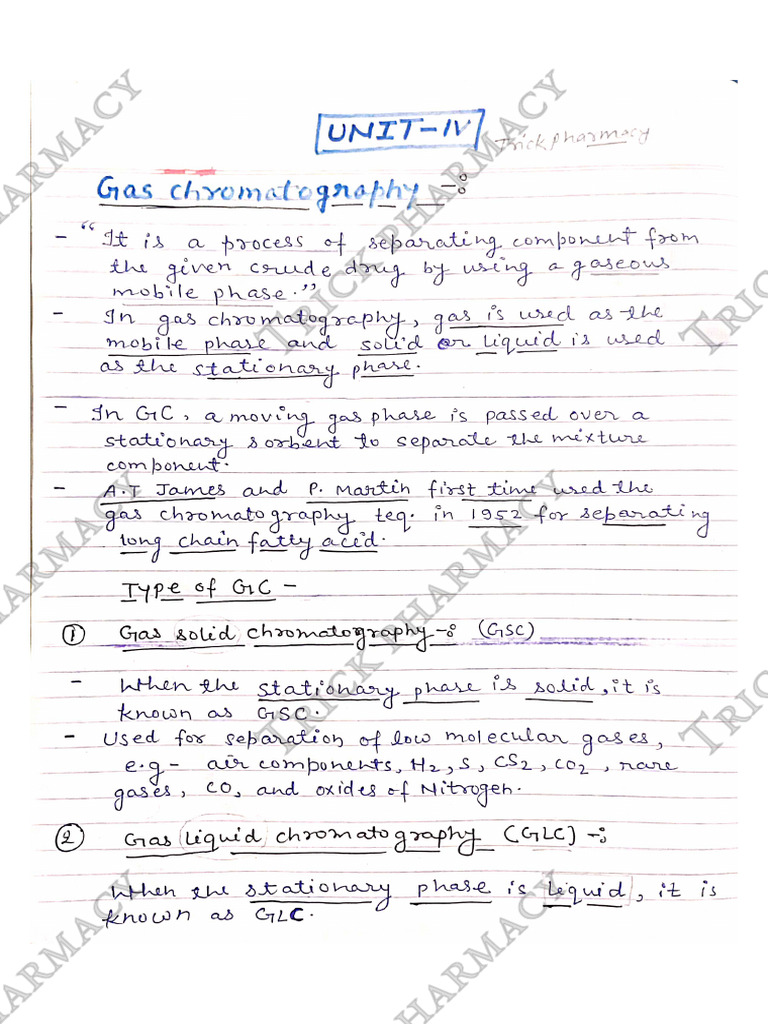 UNIT-IV
Trick pharmacy
Gas chromatography -:
- "It is a process of separating component from
the given crude drug by using a gaseous
mobile phase."
- In gas chromatography, gas is used as the
mobile phase and solid or liquid is used
as the stationary phase.
- In GC, a moving gas phase is passed over a
stationary sorbent to separate the mixture
component.
- A.T James and P. Martin first time used the
gas chromatography teq. in 1952 for separating
long chain fatty acid.
Type of GC -
① Gas solid chromatography -: (GSC)
- When the stationary phase is solid, it is
known as GSC.
- Used for separation of low molecular gases,
e.g - air components, H2, S, CS2, CO2, rare
gases, CO, and oxides of Nitrogen.
② Gas liquid chromatography (GLC) -:
When the stationary phase is liquid, it is
known as GLC.
TRICK PHARMACY
TRICK PHARMACY